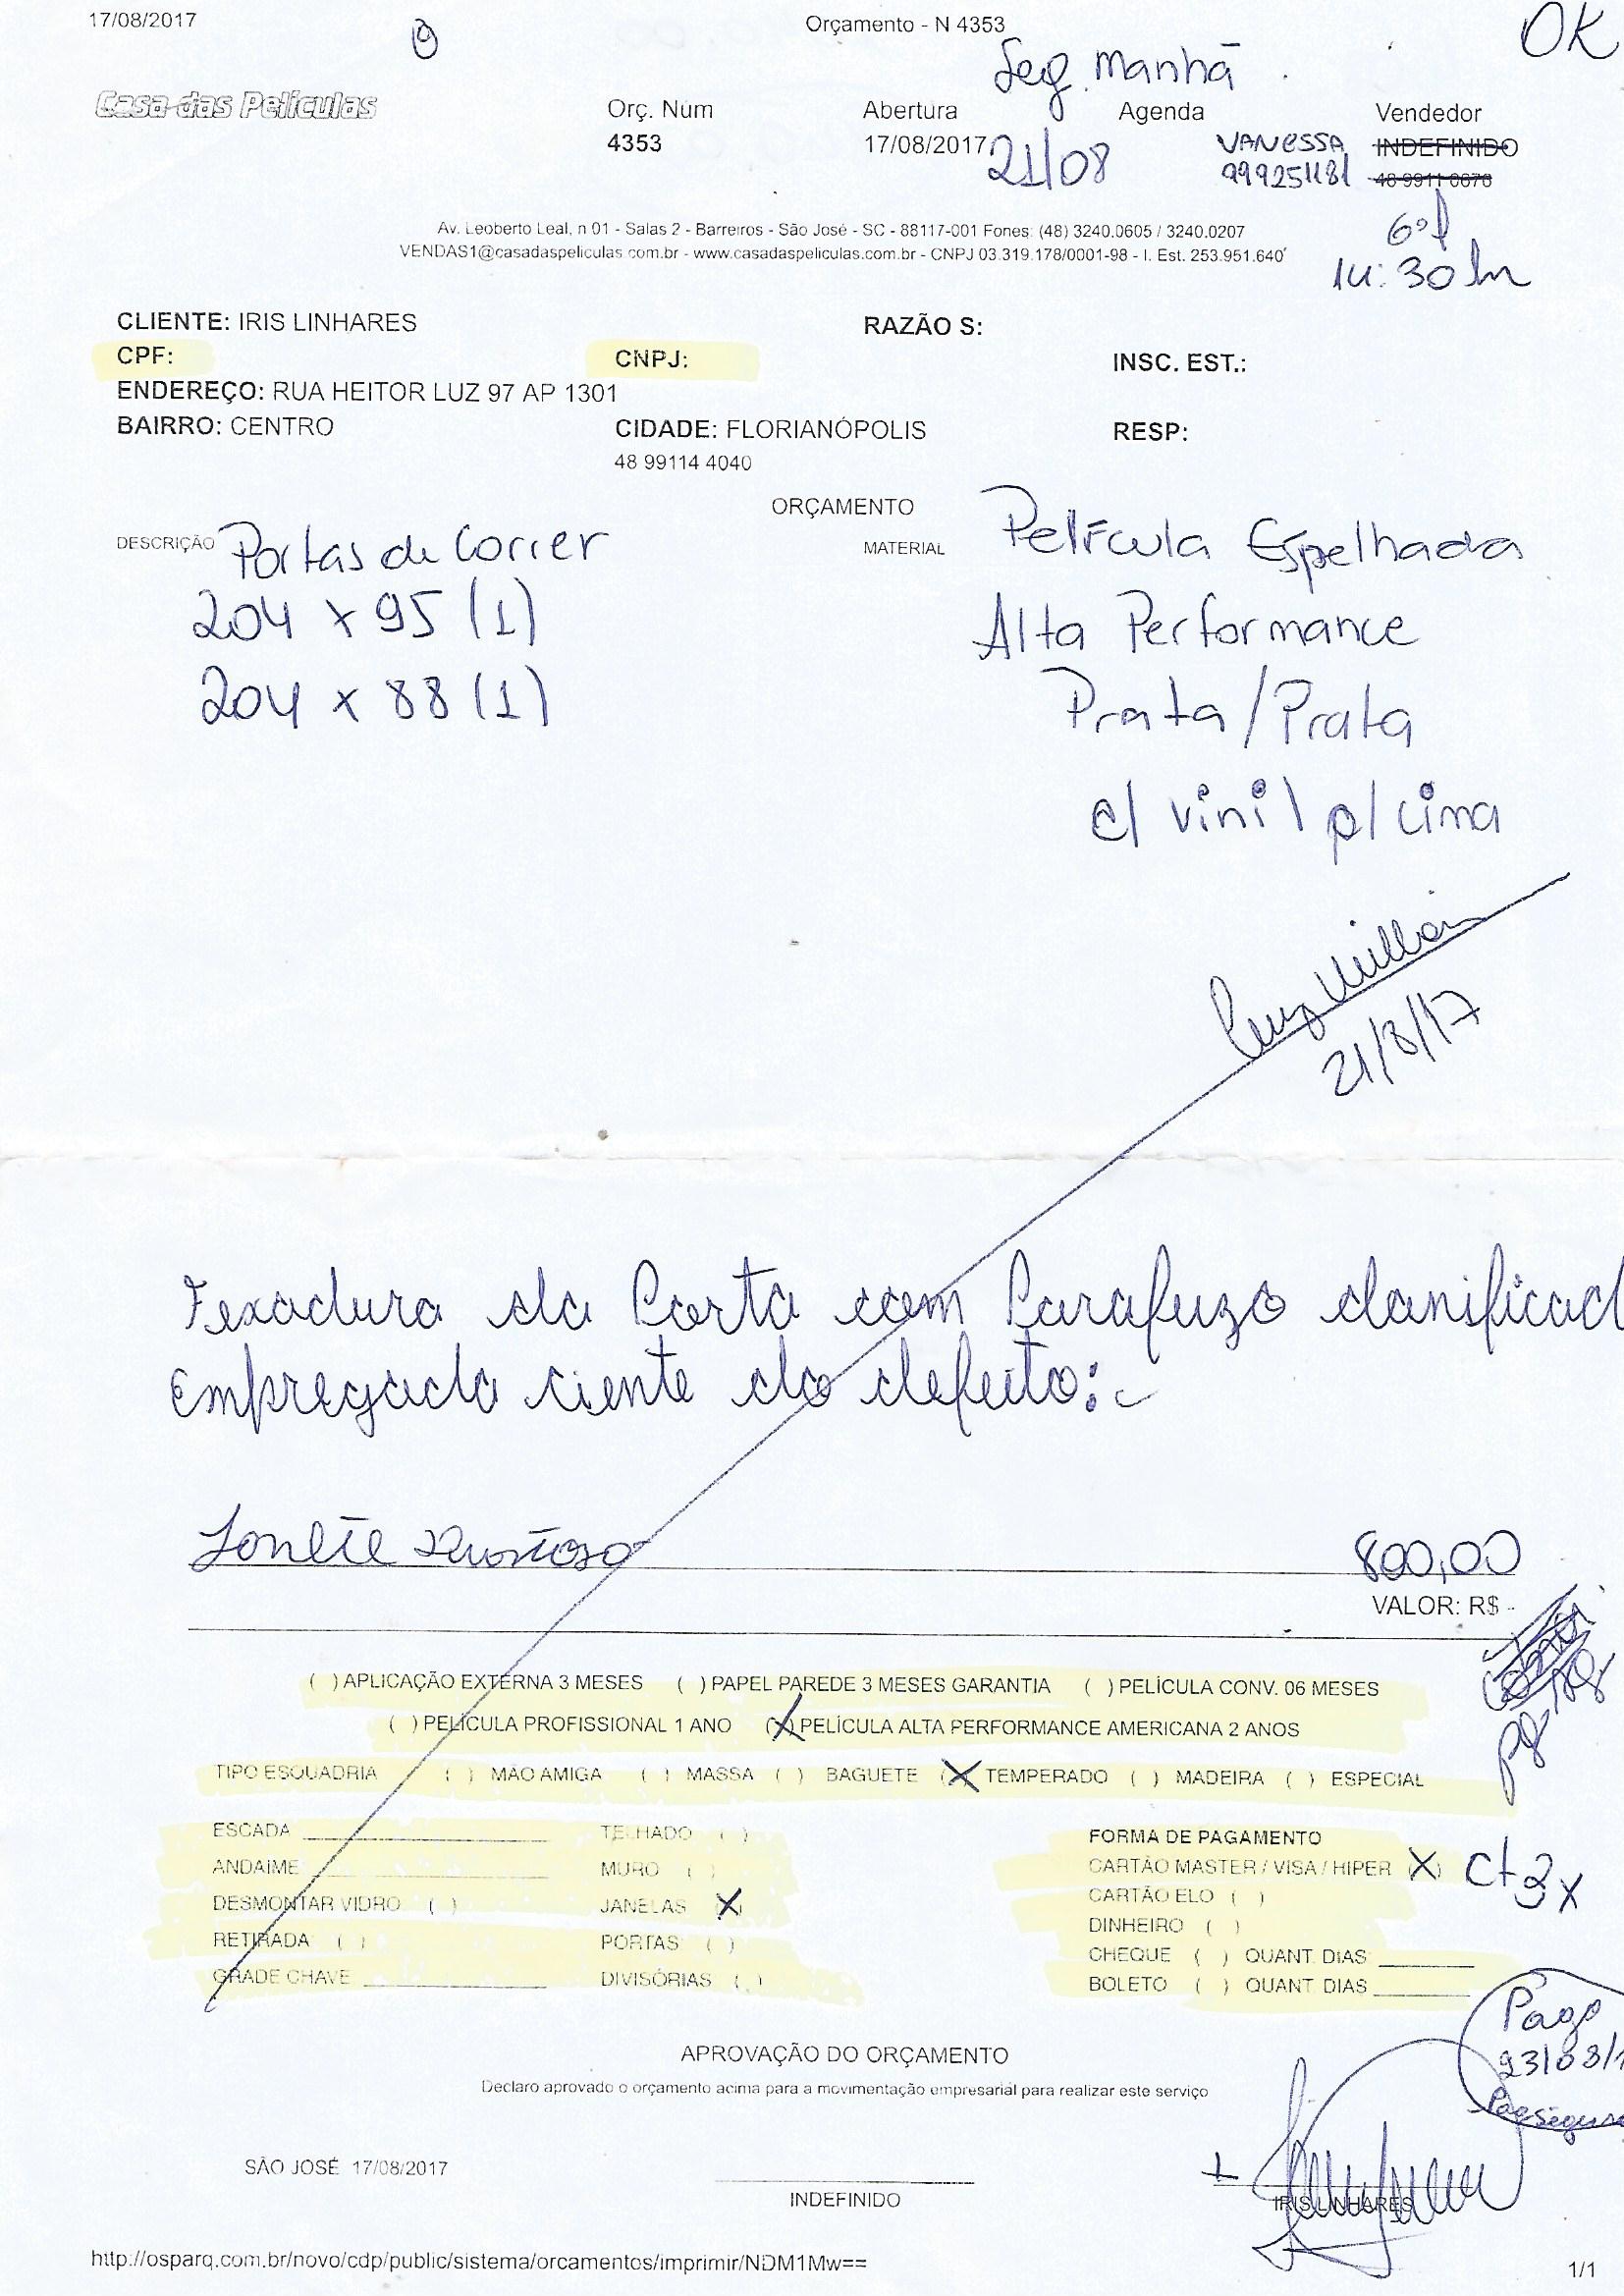 17/08/2017 Orçamento - N 4353 OK
Seg. Manhã
Casa das Películas Orç. Num Abertura Agenda Vendedor
4353 17/08/2017 21/08 VANESSA INDEFINIDO
999251181 48 9911 0676
Av. Leoberto Leal, n 01 - Salas 2 - Barreiros - São José - SC - 88117-001 Fones: (48) 3240.0605 / 3240.0207
VENDAS1@casadaspeliculas.com.br - www.casadaspeliculas.com.br - CNPJ 03.319.178/0001-98 - I. Est. 253.951.640
14:30
CLIENTE: IRIS LINHARES RAZÃO S:
CPF: CNPJ: INSC. EST.:
ENDEREÇO: RUA HEITOR LUZ 97 AP 1301
BAIRRO: CENTRO CIDADE: FLORIANÓPOLIS RESP:
48 99114 4040
ORÇAMENTO
DESCRIÇÃO Portas de Correr MATERIAL Película Espelhada
204 x 95 (1) Alta Performance
204 x 88 (1) Prata/Prata
c/ vinil p/ cima
21/8/17
Fexadura da Porta com Parafuzo danificad
Empregada ciente do defeito:
800,00
VALOR: R$ -
( ) APLICAÇÃO EXTERNA 3 MESES ( ) PAPEL PAREDE 3 MESES GARANTIA ( ) PELÍCULA CONV. 06 MESES
( ) PELÍCULA PROFISSIONAL 1 ANO (X) PELÍCULA ALTA PERFORMANCE AMERICANA 2 ANOS
TIPO ESQUADRIA ( ) MÃO AMIGA ( ) MASSA ( ) BAGUETE (X) TEMPERADO ( ) MADEIRA ( ) ESPECIAL
ESCADA TELHADO ( ) FORMA DE PAGAMENTO
ANDAIME MURO ( ) CARTÃO MASTER / VISA / HIPER (X) Ct 3x
DESMONTAR VIDRO ( ) JANELAS (X) CARTÃO ELO ( )
RETIRADA ( ) PORTAS ( ) DINHEIRO ( )
GRADE CHAVE DIVISÓRIAS ( ) CHEQUE ( ) QUANT. DIAS
BOLETO ( ) QUANT DIAS
Pago
23/08/1
Pagsegur
APROVAÇÃO DO ORÇAMENTO
Declaro aprovado o orçamento acima para a movimentação empresarial para realizar este serviço
SÃO JOSÉ 17/08/2017
INDEFINIDO IRIS LINHARES
http://osparq.com.br/novo/cdp/public/sistema/orcamentos/imprimir/NDM1Mw== 1/1